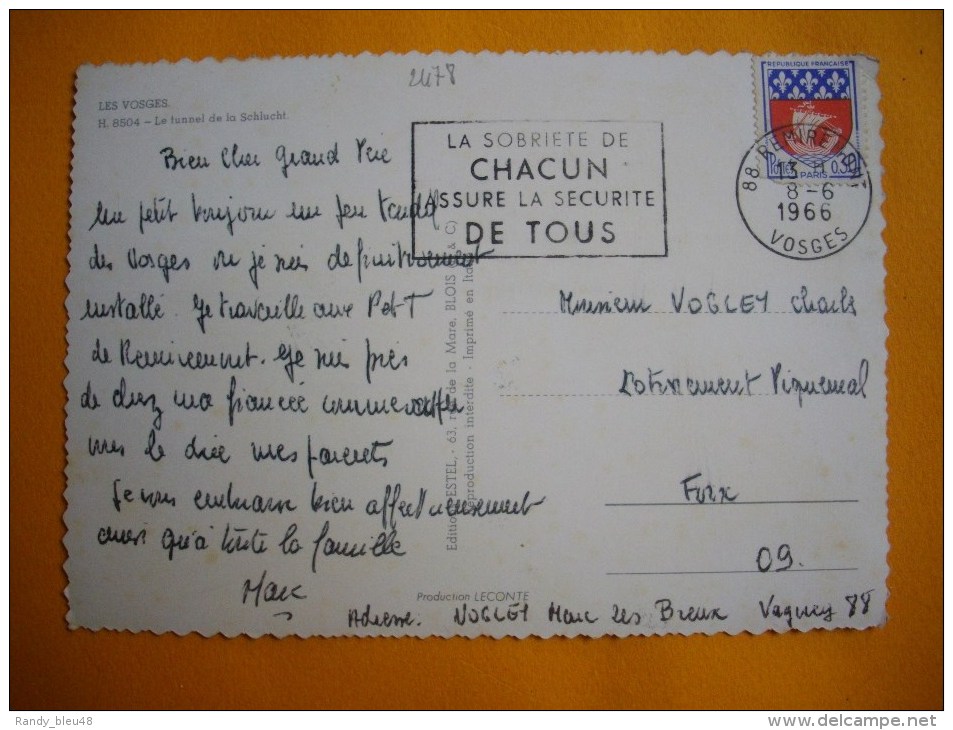 2478
LES VOSGES.
H. 8504 – Le tunnel de la Schlucht.
Bien Cher Grand Père
Un petit bonjour un peu tardif
des Vosges ou je suis definitivement
installé. Je travaille aux P et T
de Remiremont. Je suis près
de chez ma fiancée comme
vous le dire mes parents
Je vous embrasse bien affectueusement
ainsi qu'à toute la famille
Marc
LA SOBRIETE DE
CHACUN
ASSURE LA SECURITE
DE TOUS
REPUBLIQUE FRANÇAISE
POSTES 0,30
PARIS
88 REMIREMONT
13 H
8-6
1966
VOSGES
Edition ESTEL, - 63, de la Mare, BLOIS & C)
Reproduction interdite - Imprimé en
Monsieur VOGLEY Charles
Lotissement Piquemal
Foix
09.
Production LECONTE
Adresse. VOGLEY Marc Les Breux Vagney 88
Randy_bleu48
www.delcampe.net